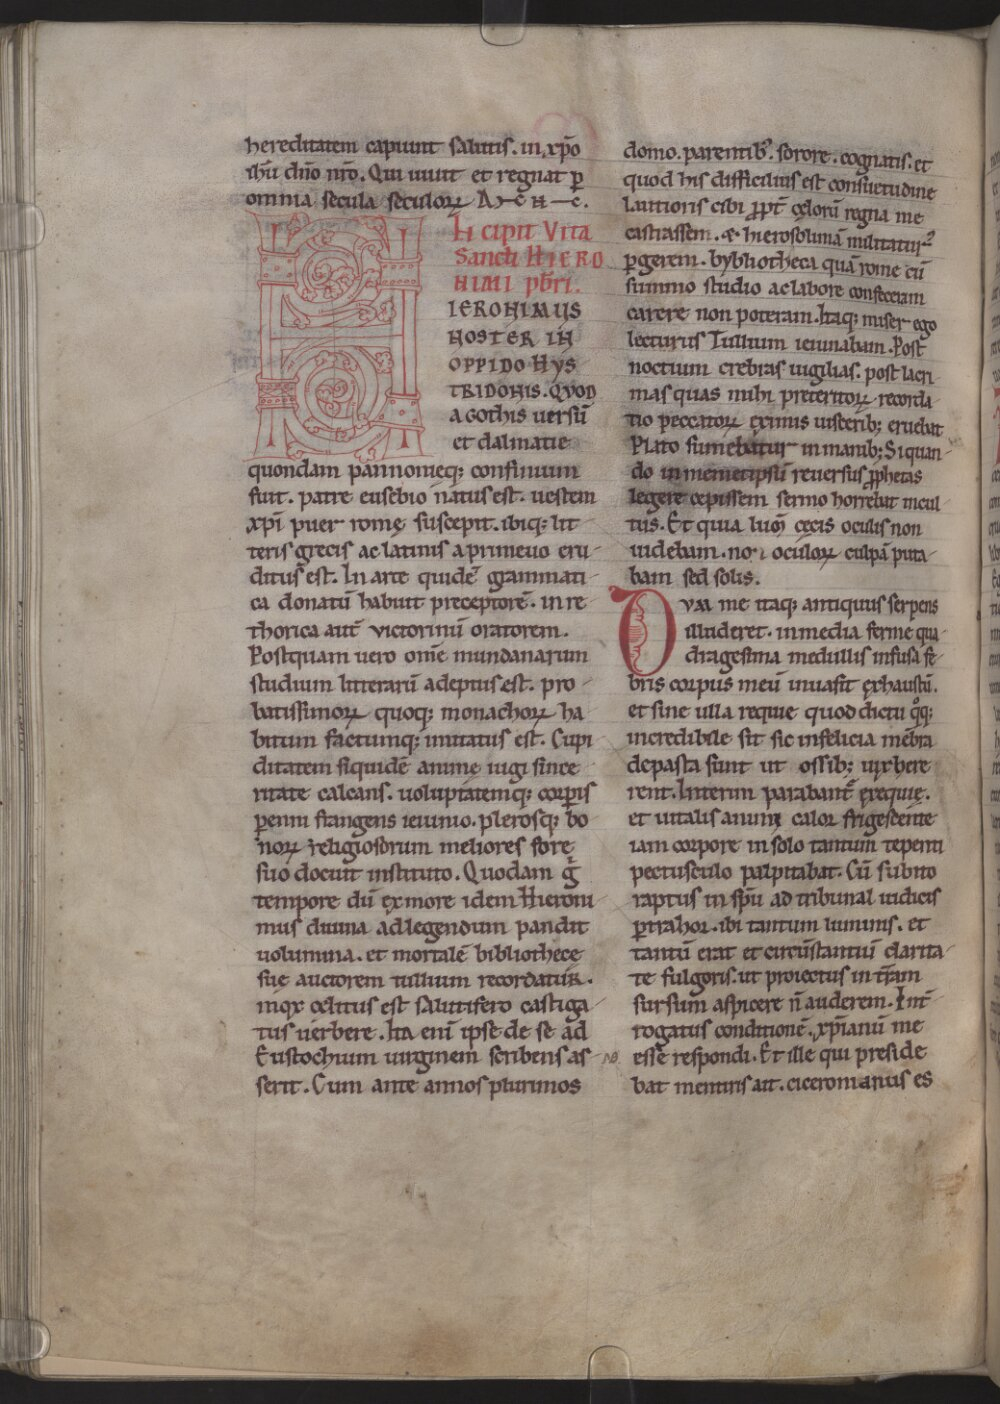 hereditatem capiunt salutis. in xp̄o
ihū dn̄o nr̄o. Qui uiuit et regnat ꝑ
omnia secula seculoꝝ AMEN.
Incipit Vita
Sancti HIERO
NIMI pb̄ri.
HIERONIMUS
NOSTER IN
OPPIDO HYS
TRIDONIS. QVOD
A GOTHIS uersū
et dalmatie
quondam pannonięq; confinium
fuit. patre eusebio natus est. uestem
xp̄i puer romę suscepit. ibiq; lit
teris grecis ac latinis a primeuo eru-
ditus est. In arte quidē grammati-
ca donatū habuit preceptorē. in re-
thorica aut̄ victorinū oratorem.
Postquam uero om̄e mundanarum
studium litterarū adeptus est. pro-
batissimoꝝ quoq; monachoꝝ ha
bitum factumq; imitatus est. Cupi
ditatem siquidē animę iugi since-
ritate calcans. uoluptatemq; corꝑis
ꝑenni frangens ieiunio. plerosq; bo-
noꝝ religiosorum meliores fore
suo docuit instituto. Quodam g̊
tempore dū ex more idem Hieroni
mus diuina ad legendum pandit
uolumina. et mortalē bibliothece
sue auctorem tullium recordatur.
mox celitus est salutifero castiga-
tus uerbere. Ita eni ipse de se ad
Eustochium uirginem scribens as-
serit. Cum ante annos plurimos
domo. parentib᾽. sorore. cognatis. et
quod his difficilius est consuetudine
lautioris cibi ꝓpt̄ cęlorū regna me
castrassem. & hierosolimā militatur᾽
ꝑgerem. bybliotheca quā rome cū
summo studio ac labore confeceram
carere non poteram. Itaq; miser ego
lecturus Tullium ieiunabam. Post
noctium crebras uigilias. post lacri-
mas quas mihi preteritoꝝ recorda-
tio peccatoꝝ ex imis uiscerib; eruebat
Plato sumebatur in manib; Si quan-
do in memetipsū reuersus ꝓphetas
legere cepissem sermo horrebat incul
tus. Et quia lum̄ cęcis oculis non
uidebam. non oculoꝝ culpā puta-
bam sed solis.
DVM me itaq; antiquus serpens
illuderet. in media ferme qua-
dragesima medullis infusa fe-
bris corpus meū inuasit exhaustū.
et sine ulla requie quod dictu q̊q;
incredibile sit sic infelicia mēbra
depasta sunt ut ossib; uix here
rent. Interim parabant᾽ exequię.
et uitalis animę calor frigescente
iam corpore in solo tantum tepenti
pectusculo palpitabat. Cū subito
raptus in sp̄u ad tribunal iudicis
ꝑtrahor. ibi tantum luminis. et
tantū erat et circūstantiū clarita-
te fulgoris. ut proiectus in t̄ram
sursum aspicere n̄ auderem. Int̄-
rogatus conditionē. xp̄ianū me
esse respondi. Et ille qui preside
bat mentiris ait. ciceronianus es